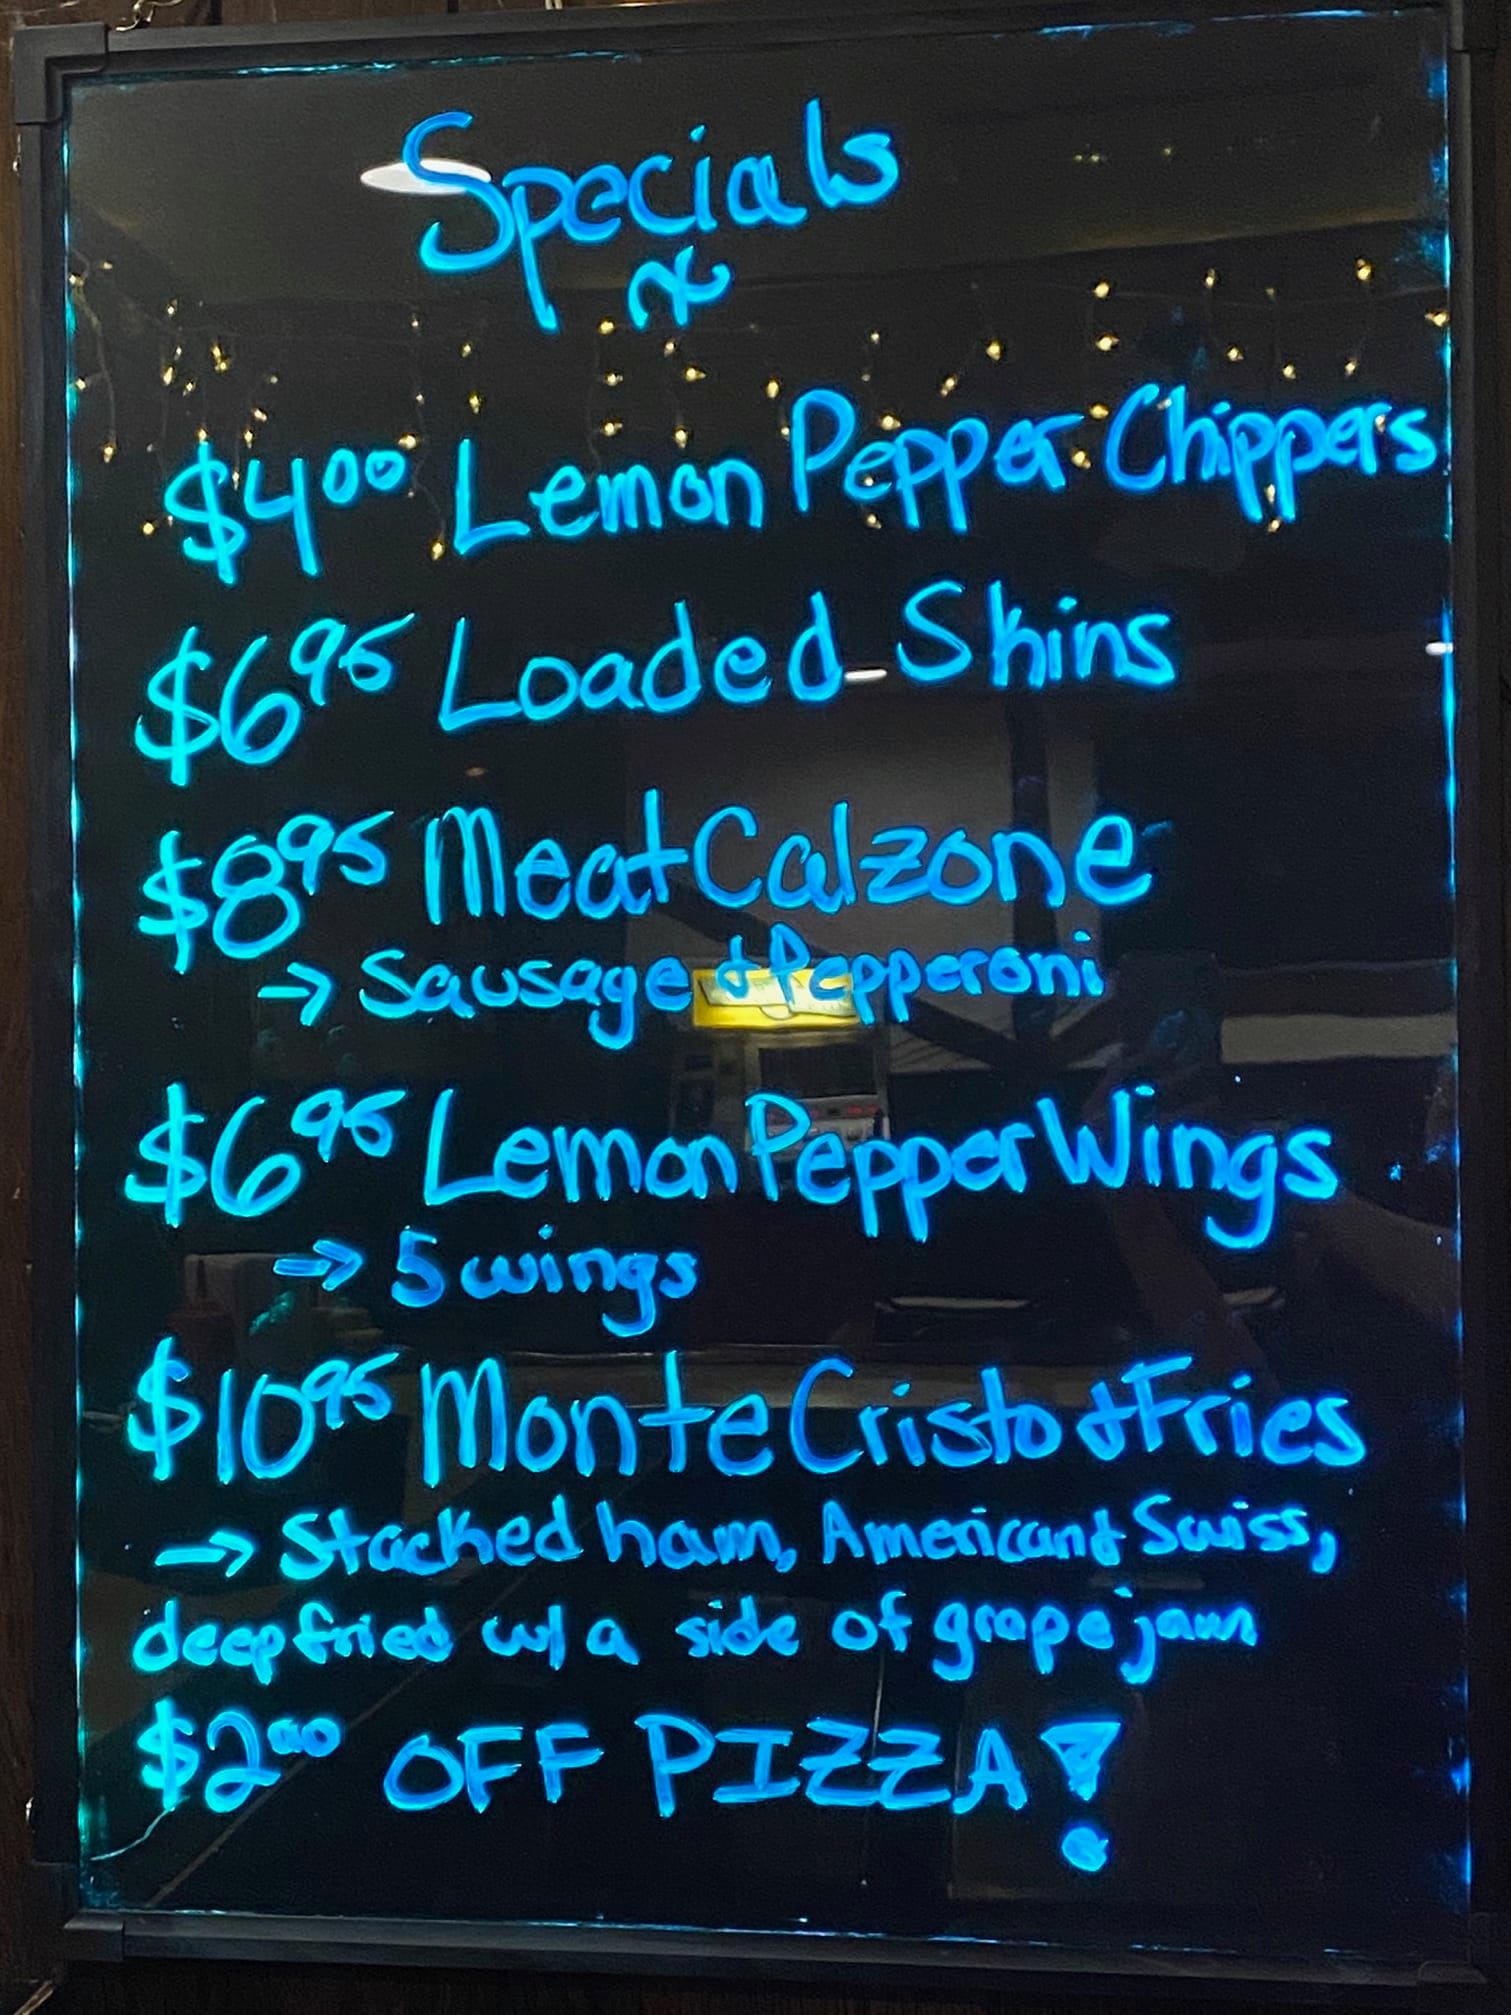 Specials
$4.00 Lemon Pepper Chippers
$6.95 Loaded Skins
$8.95 Meat Calzone
→ Sausage & Pepperoni
$6.95 Lemon Pepper Wings
→ 5 wings
$10.95 Monte Cristo & Fries
→ Stacked ham, American & Swiss,
deep fried w/ a side of grape jam
$2.00 OFF PIZZA!